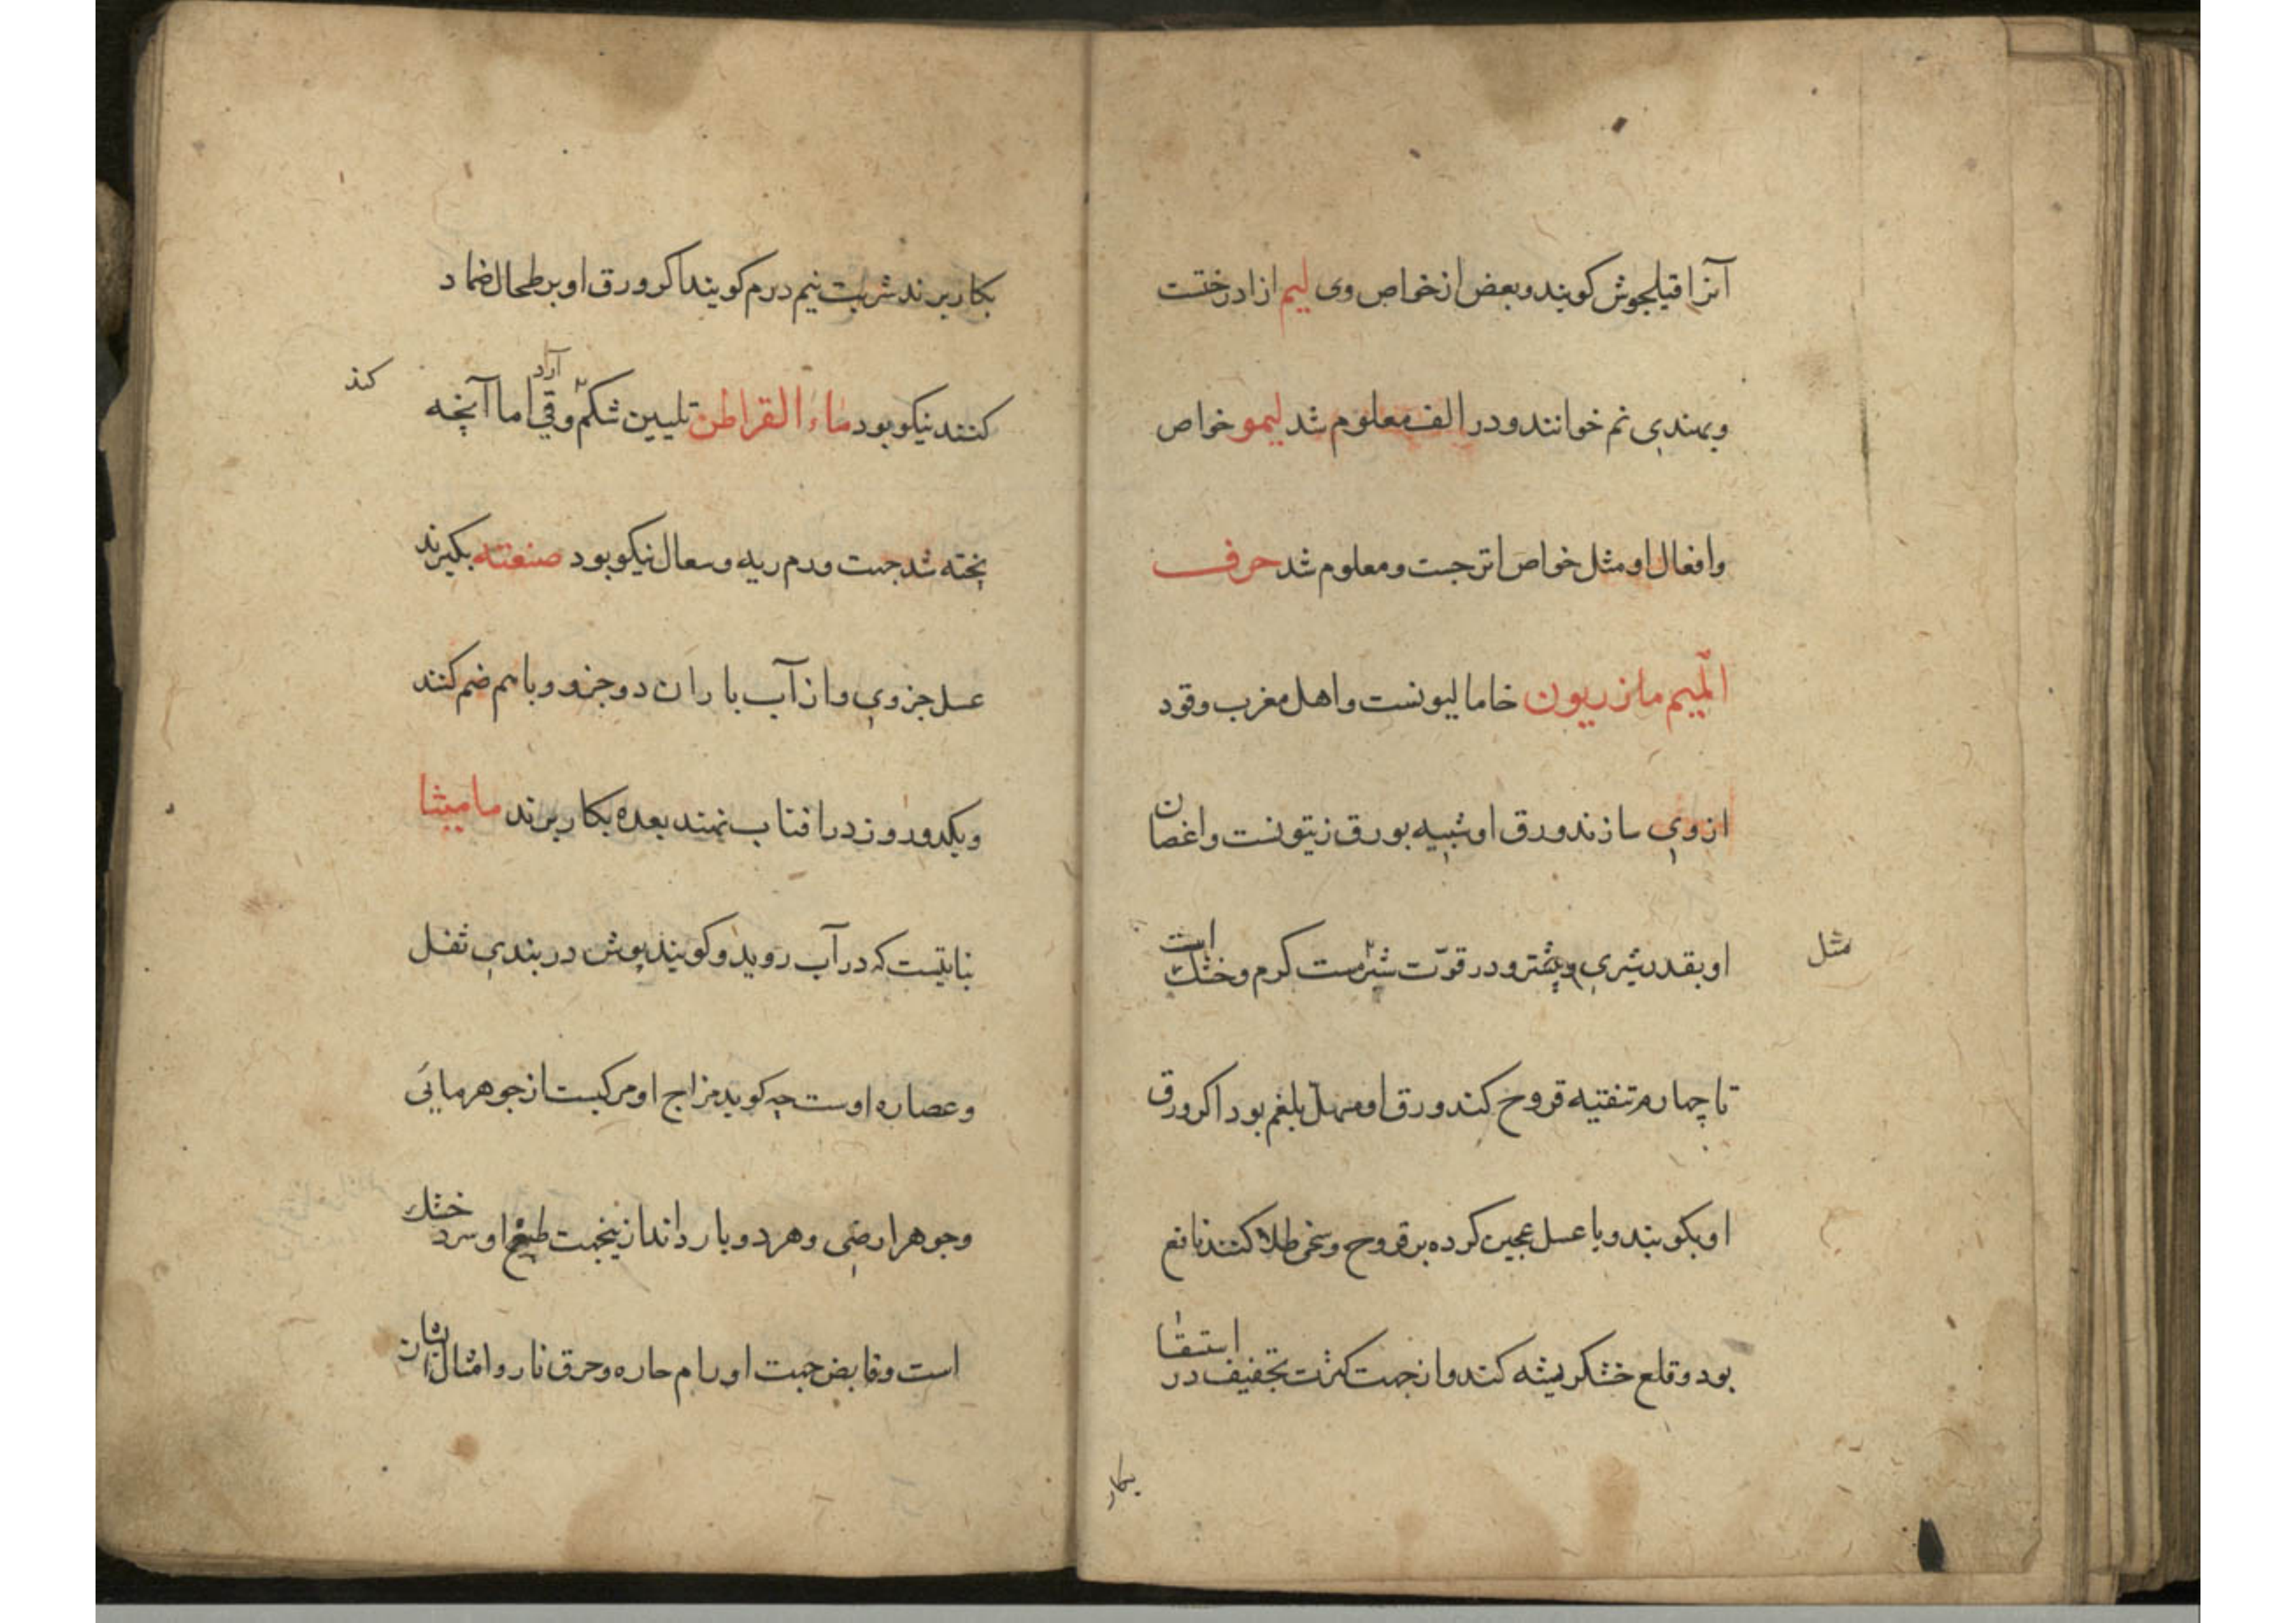 آنرا قیلجوش کویند و بعض از خواص وی لیم ازاد درختست
و بهندی نم خوانند و در الف معلوم شد لیمو خواص
و افعال او مثل خواص اترجست و معلوم شد حرف
المیم مازریون خامالیونست و اهل مغرب وقود
از وی سازند ورق او شبیه بورق زیتونست و اغصان
مثل
او بقدر شبری و بیشتر و در قوّت شبرمست کرم و خشک است
تا چهارم تنقیه قروح کند ورق او مسهل بلغم بود اکر ورق
او بکوبند و با عسل عجین کرده بر قروح و طلا کنند نافع
بود و قلع خشکریشه کند و از جهت کثرت تجفیف در استسقا
بکار
بکار برند شربت نیم درم کویند اکر ورق او بر طحال ضماد
کنند نیکو بود ماء القراطن تلیین شکم و قی آرد اما آنچه
کند
پخته شد جهت ورم ریه و سعال نیکو بود صنعته بکیرند
عسل جزوی و از آب باران دو جزو و با هم ضم کنند
و یکدو روز در افتاب نهند بعده بکار برند مامیثا
نباتیست که در آب روید و کویند پوش دربندی ثفل
و عصاره اوست جه کوید مزاج او مرکبست از جوهر مائی
و جوهر ارضی و هر دو بارد اند ازینجهت طبع او سرد خشک
است و قابض جهت اورام حاره و حرق نار و امثال ایشان